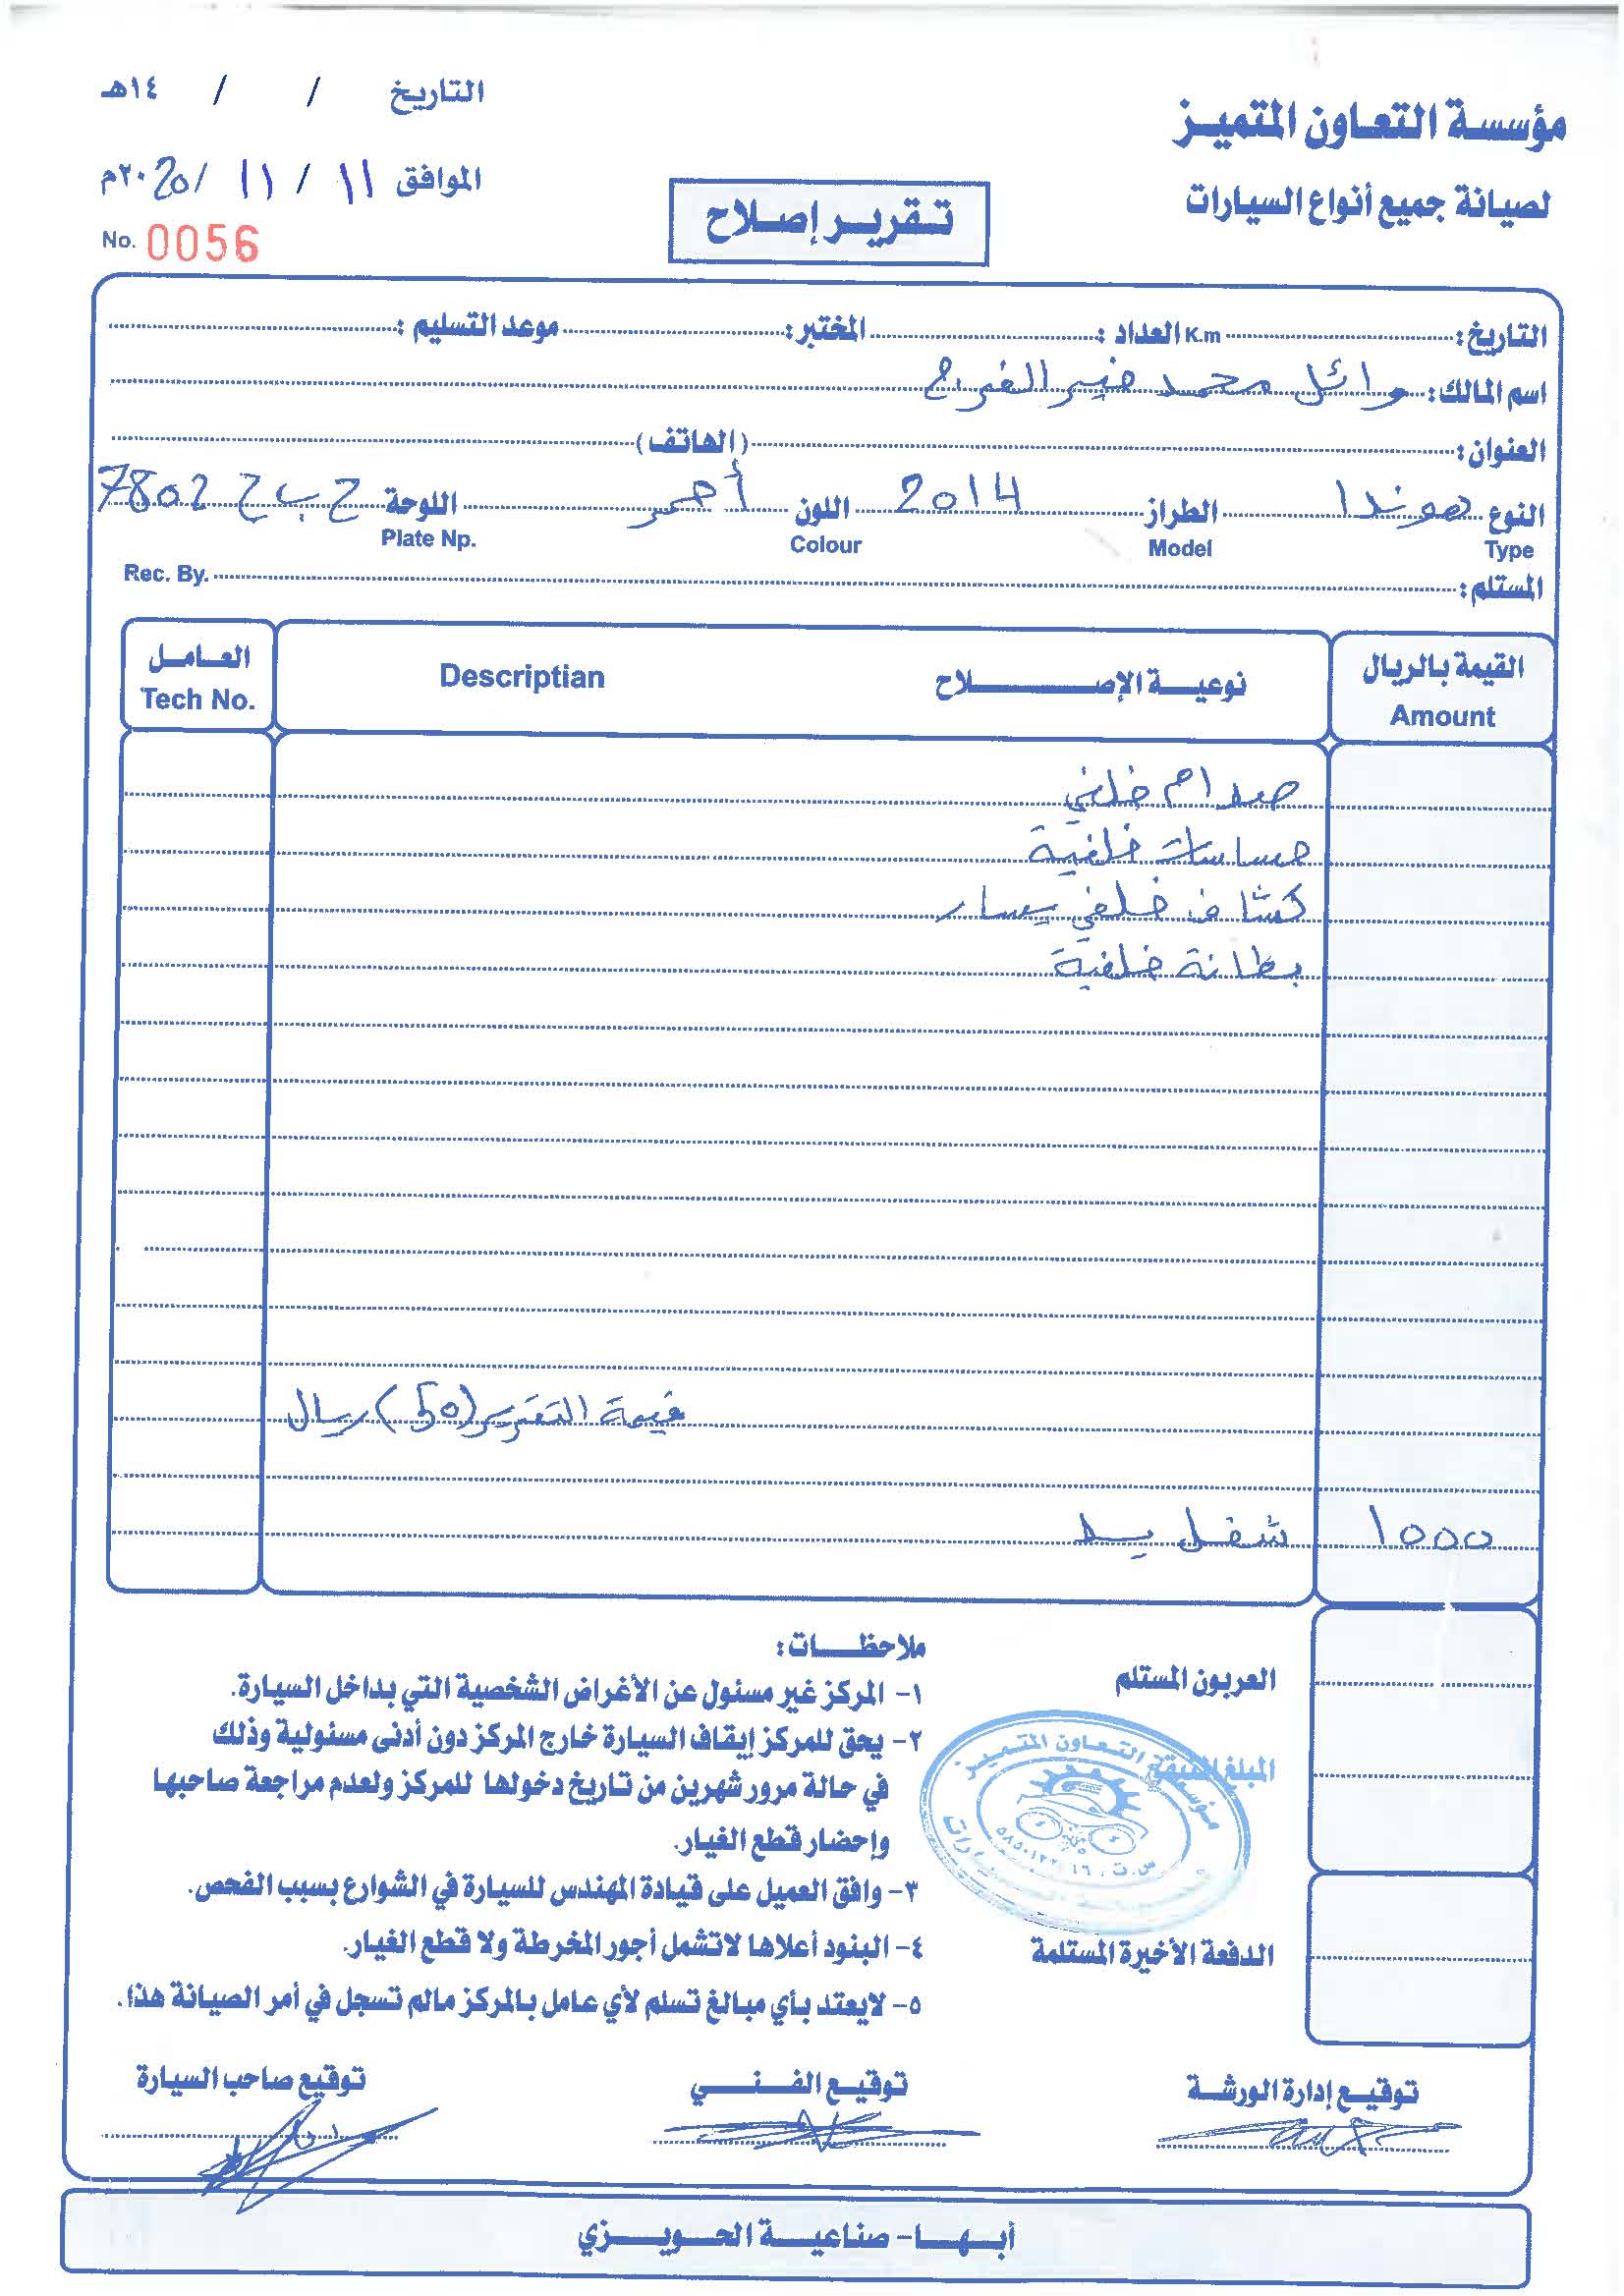 مؤسسة التعاون المتميز
لصيانة جميع أنواع السيارات
التاريخ / / ١٤هـ
الموافق ١١ / ١١ / ٢٠20م
No. 0056
تقرير إصلاح
التاريخ: K.m العداد : المختبر: موعد التسليم :
اسم المالك: وائل محمد منير الفراج
العنوان: (الهاتف)
النوع هوندا الطراز 2014 اللون أحمر اللوحة ح ب ح 7802
Type Model Colour Plate Np.
المستلم: Rec. By.
القيمة بالريال نوعية الإصلاح Descriptian العامل
Amount Tech No.
صدام خلفي
حساسات خلفية
كشاف خلفي يسار
بطانة خلفية
قيمة التقرير (50) ريال
1000 شغل يد
العربون المستلم
المبلغ
الدفعة الأخيرة المستلمة
مؤسسة التعاون المتميز
س.ت.
ملاحظات:
١- المركز غير مسئول عن الأغراض الشخصية التي بداخل السيارة.
٢- يحق للمركز إيقاف السيارة خارج المركز دون أدنى مسئولية وذلك
في حالة مرور شهرين من تاريخ دخولها للمركز ولعدم مراجعة صاحبها
وإحضار قطع الغيار.
٣- وافق العميل على قيادة المهندس للسيارة في الشوارع بسبب الفحص.
٤- البنود أعلاها لاتشمل أجور المخرطة ولا قطع الغيار.
٥- لايعتد بأي مبالغ تسلم لأي عامل بالمركز مالم تسجل في أمر الصيانة هذا.
توقيع إدارة الورشة توقيع الفني توقيع صاحب السيارة
أبها - صناعية الحويزي